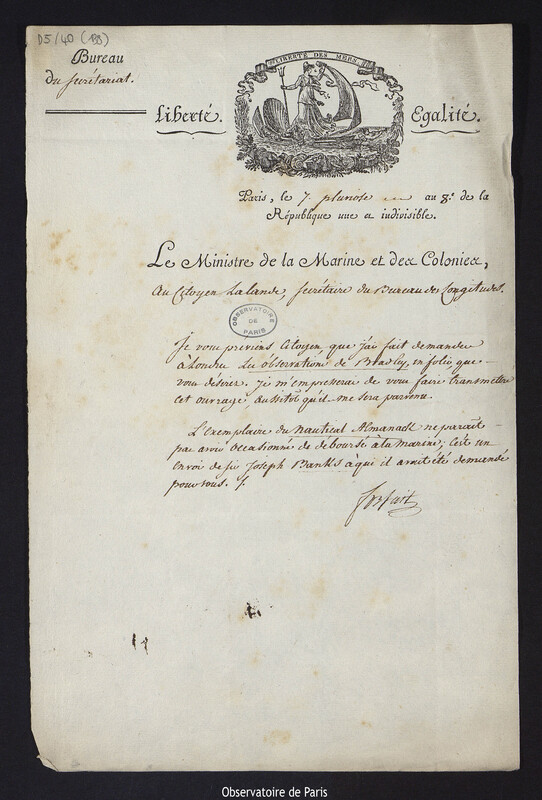 D5/40 (133)
Bureau
du Secrétariat.
LIBERTÉ DES MERS.
Liberté.
Egalité.
Paris, le 7 pluviose au 8.e de la
République une et indivisible.
Le Ministre de la Marine et des Colonies,
Au Citoyen Lalande Secrétaire du Bureau des Longitudes.
OBSERVATOIRE
DE
PARIS
Je vous préviens Citoyen que j'ai fait demander
à Londres les observations de Bradley, in folio que
vous désirez. Je m'empresserai de vous faire transmettre
cet ouvrage, aussitôt qu'il me sera parvenu.
L'exemplaire du Nautical Almanack ne parait
pas avoir occasionné de déboursé à la marine; C'est un
Envoi de Sir Joseph Banks à qui il avait été demandé
pour vous. /.
Forfait
Observatoire de Paris